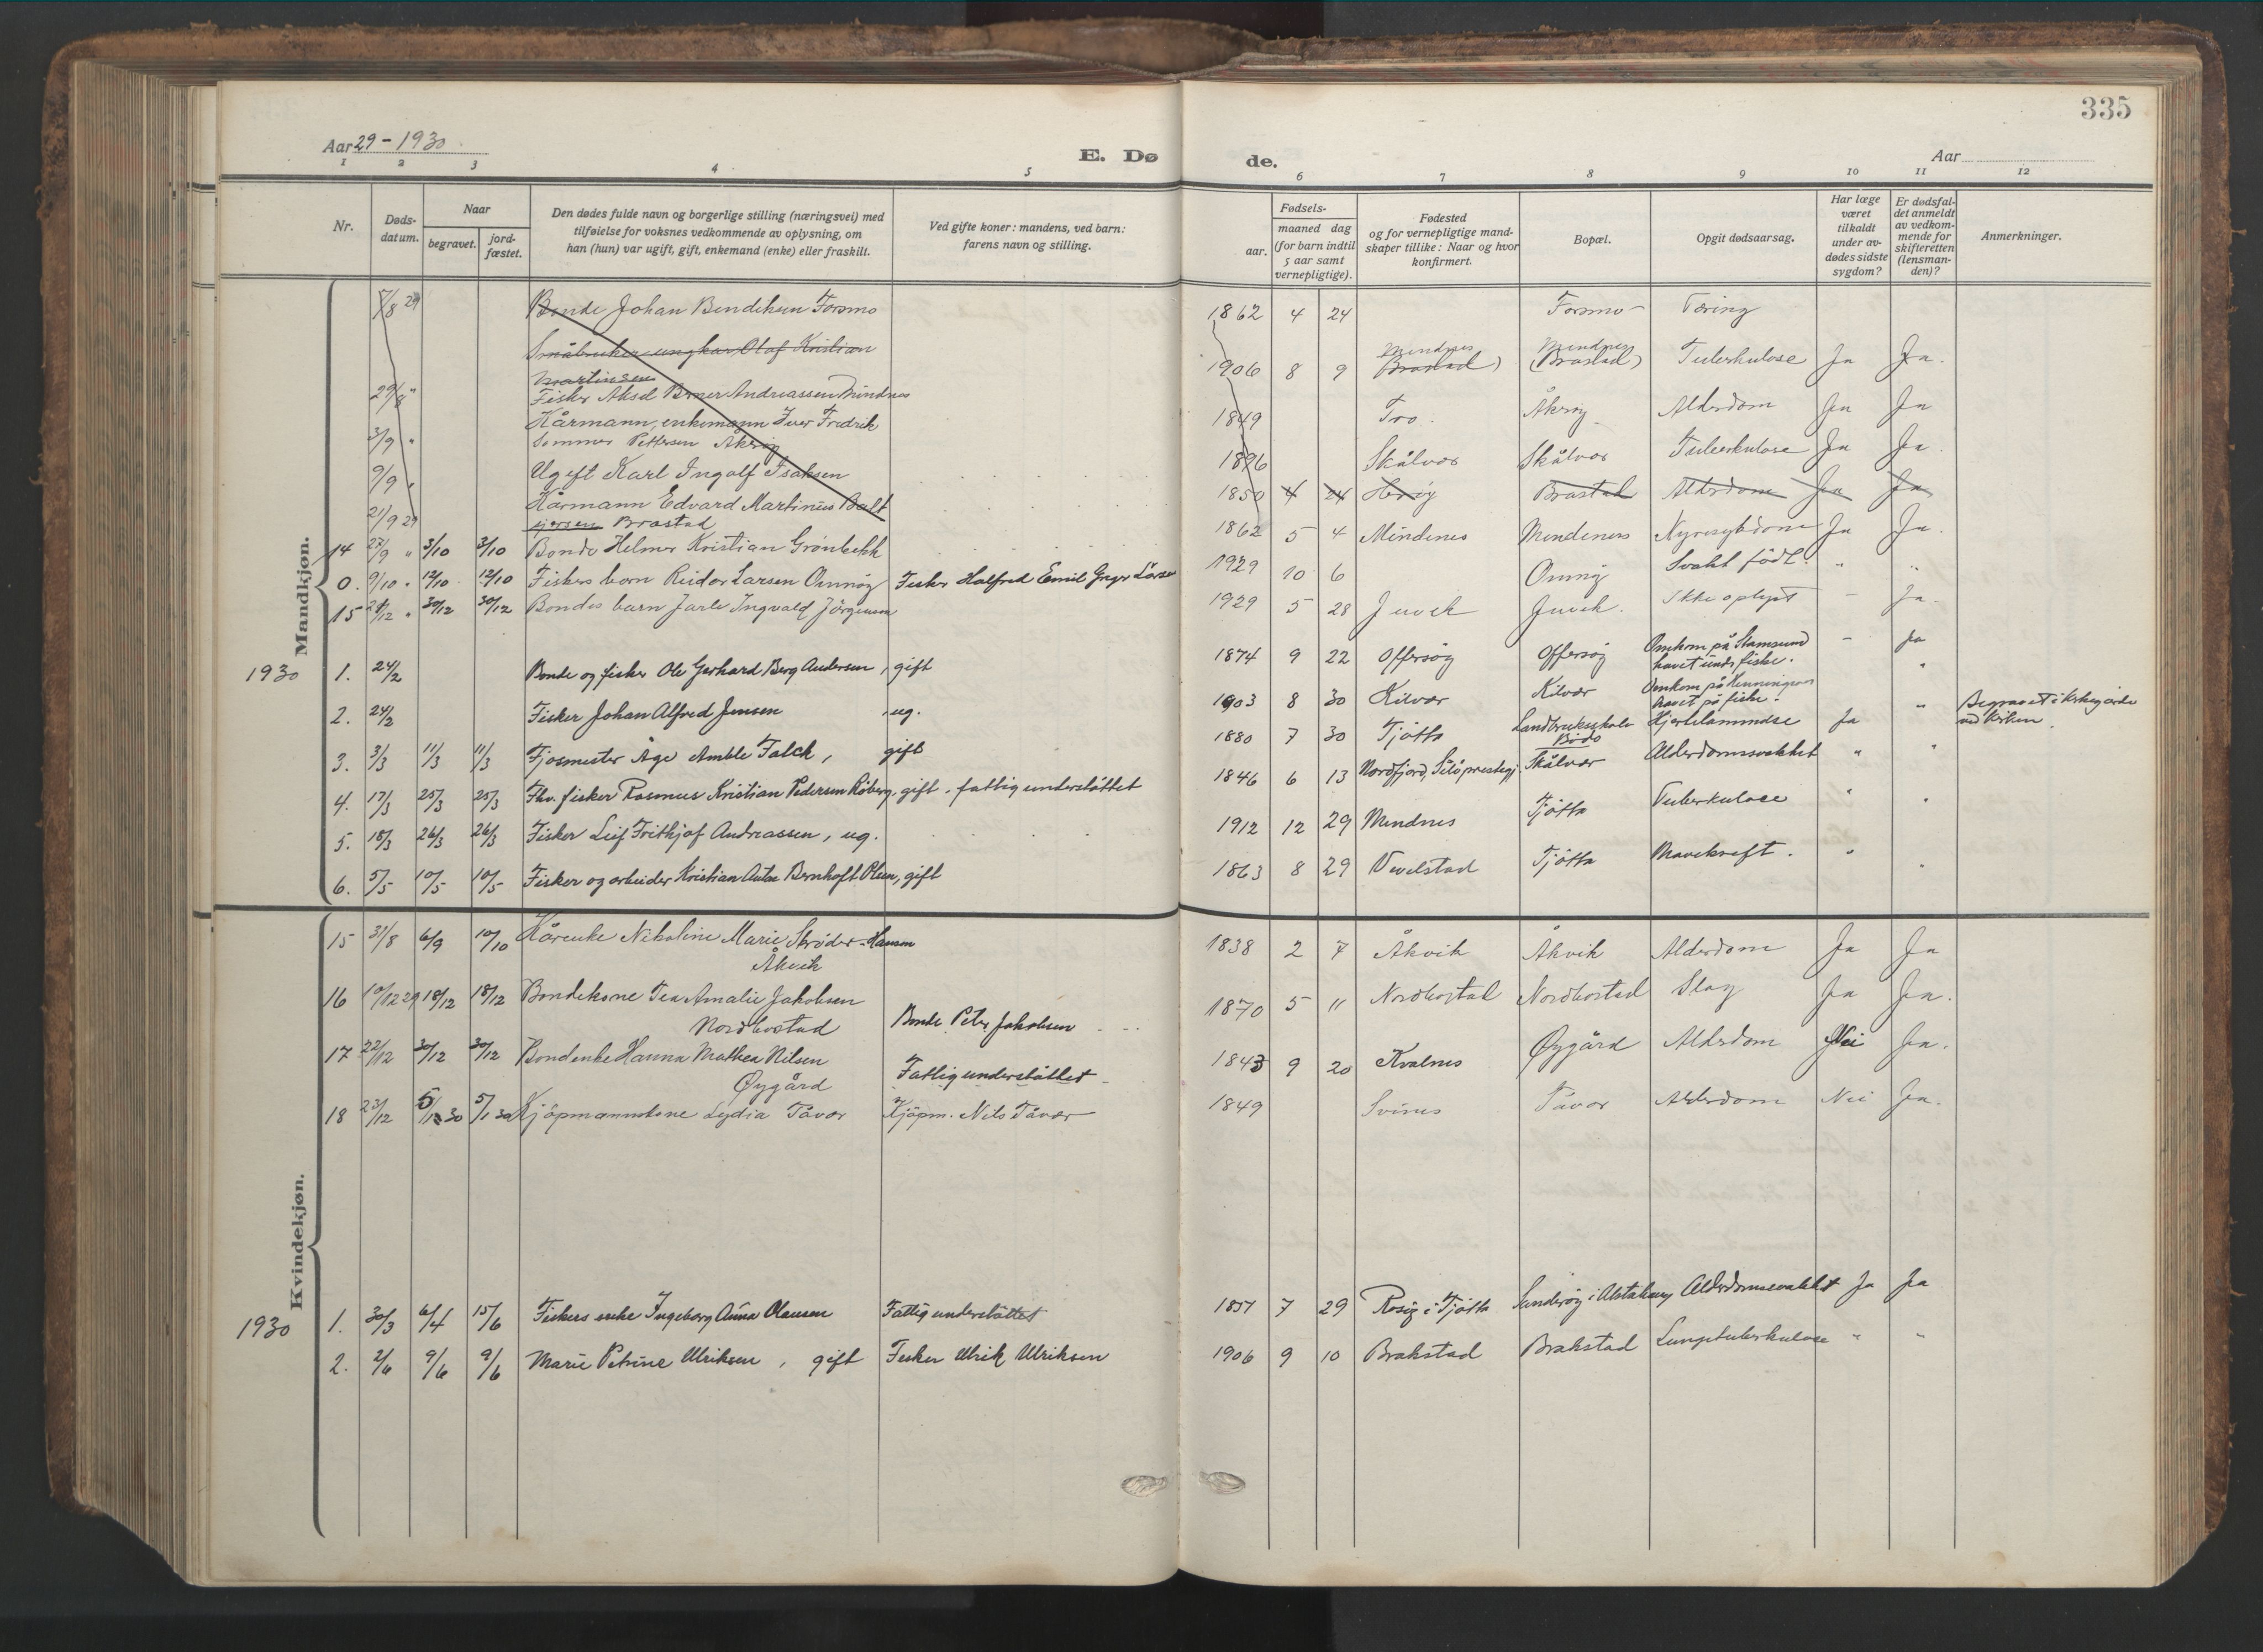 335
Aar 29 - 1930
E. Dø de.
Aar
1 2 3 4 5 6 7 8 9 10 11 12
Nr.
Døds-
datum.
Naar
begravet.
jord-
fæstet.
Den dødes fulde navn og borgerlige stilling (næringsvei) med
tilføielse for voksnes vedkommende av oplysning, om
han (hun) var ugift, gift, enkemand (enke) eller fraskilt.
Ved gifte koner: mandens, ved barn:
farens navn og stilling.
Fødsels-
aar.
maaned dag
(for barn indtil
5 aar samt
vernepligtige).
Fødested
og for vernepligtige mand-
skaper tillike: Naar og hvor
konfirmert.
Bopæl.
Opgit dødsaarsag.
Har læge
været
tilkaldt
under av-
dødes sidste
sygdom?
Er dødsfal-
det anmeldt
av vedkom-
mende for
skifteretten
(lensman-
den)?
Anmerkninger.
Mandkjøn.
7/8 29 Bonde Johan Bendiksen Forsmo 1862 4 24 Forsmo - Tæring
Småbruker ungkar Olaf Kristian
Martinsen
29/8 " Fisker Aksel Andreassen Mindnes 1906 8 9 Mindnes (Brastad) Mindnes (Brastad) Tuberkulose Ja Ja.
Kårmann, enkemann Iver Fredrik
3/9 " Sommer Pettersen Åkerøy 1849 Tro. Åkerøy Alderdom Ja Ja
9/9 " Ugift Karl Ingolf Isaksen 1896 Skålvær Skålvær Tuberkulose Ja Ja
Kårmann Edvard Martinus Balt
21/9 29 Brastad 1850 4 24 Herøy Brastad Alderdom Ja Ja
14 27/9 " 3/10 3/10 Bonde Helmer Kristian Grønbekk 1862 5 4 Mindenes Mindenes Nyresykdom Ja Ja.
0. 9/10 " 12/10 12/10 Fiskers barn Reidar Larsen Omnøy Fisker Halfred Emil Larsen 1929 10 6 Omnøy Svakt født. " "
15 24/12 " 30/12 30/12 Bondes barn Jarle Ingvald Jørgensen 1929 5 28 Juvik Juvik. Ikke oplyst - Ja.
1930 1. 24/2 Bonde og fisker Ole Gerhard Berg Andersen, gift 1874 9 22 Offersøy Offersøy Omkom på Stamsund
havet under fiske. - Ja
2. 24/2 Fisker Johan Alfred Jensen, ug. 1903 8 30 Kilvær Kilvær Omkom på Henningsvær
havet på fiske. "
3. 3/3 11/3 11/3 Fjosmester Åge Amble Falch, gift 1880 7 30 Tjøtta Landbruksskole
Bodø Hjertelammelse Ja " Begravet i kirkegårde
ved kirken.
4. 17/3 25/3 25/3 Fhv. fisker Rasmus Kristian Pedersen Røberg, gift, fattigunderstøttet 1846 6 13 Nordfjord, Skålvær Alderdomssvakhet " "
5. 18/3 26/3 26/3 Fisker Leif Frithjof Andreassen, ug. 1912 12 29 Mindnes Tjøtta Tuberkulose " "
6. 5/5 10/5 10/5 Fisker og arbeider Kristian Anton Bernhoft Olsen, gift 1863 8 29 Vevelstad Tjøtta Mavekreft. " "
Kvindekjøn.
15 31/8 6/9 10/10 Kårenke Nikoline Marie Strøder-Hansen
Åkvik 1838 2 7 Åkvik Åkvik Alderdom Ja Ja
16 10/12 29 18/12 18/12 Bondekone Tea Amalie Jakobsen
Nordbostad Bonde Peter Jakobsen 1870 5 11 Nordbostad Nordbostad Slag Ja Ja.
17 22/12 30/12 30/12 Bondenke Hanna Mathea Nilsen
Øygård Fattigunderstøttet 1843 9 20 Kvalnes Øygård Alderdom Nei Ja.
18 23/12 5/1 30 5/1 30 Kjøpmannskone Lydia Tåvær Kjøpm. Nils Tåvær 1849 Svines Tåvær Alderdom Nei Ja.
1930 1. 30/3 6/4 15/6 Fiskers enke Ingeborg Anna Olausen Fattigunderstøttet 1857 7 29 Rosøy i Tjøtta Sanderøy i Alstahaug Alderdomssvakhet Ja Ja
2. 2/6 9/6 9/6 Marie Petrine Ulriksen, gift Fisker Ulrik Ulriksen 1906 9 10 Brakstad Brakstad Lungetuberkulose " "